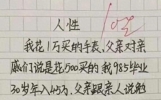 人性
10分
我花1万买的手表,父亲对亲
戚们说是花500买的 我985毕业
30岁年入45万,父亲跟亲人说我